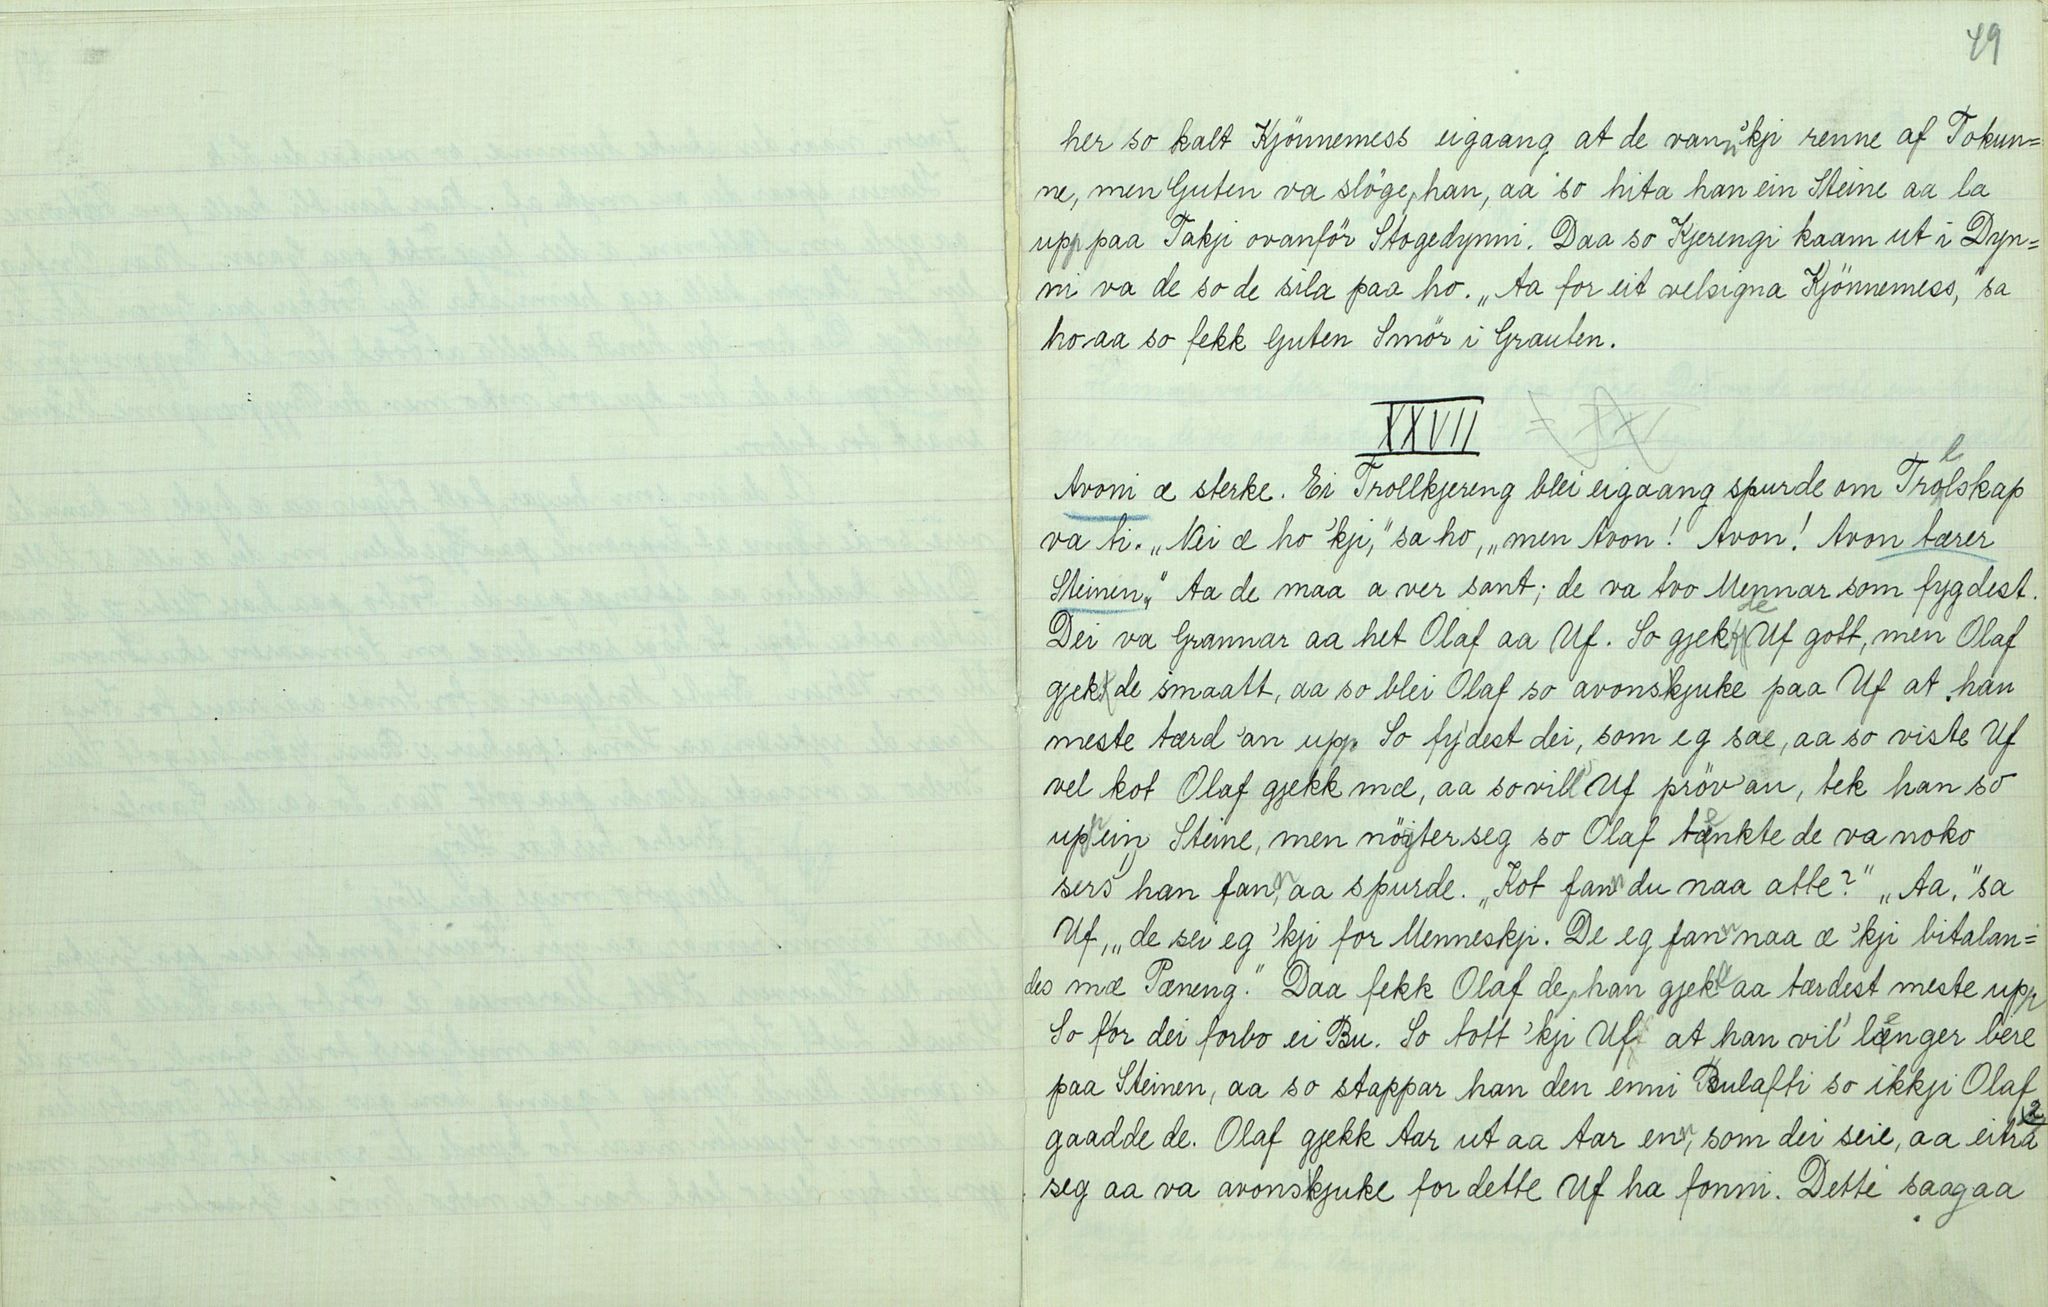 49
her so kalt Kjönnemess eigaang at de vann 'kji renne af Tokun=
ne, men Guten va slöge, han, aa so hita han ein Steine aa la
upp paa Takji ovanför Stogedynni. Daa so Kjerengi kaam ut i Dyn=
ni va de so de sila paa ho. „Aa for eit velsigna Kjönnemess," sa
ho aa so fekk Guten Smör i Grauten.
XXVII
Avoni æ sterke. Ei Trollkjereng blei eigaang spurde om Trolskap
va ti. „Nei æ ho 'kji," sa ho, „men Avon! Avon! Avon tærer
Steinen." Aa de maa a ver sant; de va tvo Mennar som fygdest.
Dei va Grannar aa het Olaf aa Uf. So gjek de Uf gott, men Olaf
gjek de smaatt, aa so blei Olaf so avonskjuke paa Uf at han
meste tærd 'an upp. So fydest dei, som eg sae, aa so viste Uf
vel kot Olaf gjekk mæ, aa so vill' Uf pröv 'an, tek han so
upp ein Steine, men nögter seg so Olaf tenkte de va noko
sers han fann, aa spurde. „Kot fann du naa atte?" „Aa," sa
Uf, „de sei eg 'kji for Menneskji. De eg fann naa æ 'kji bitalan=
des mæ Pæneng." Daa fekk Olaf de, han gjekk aa tærdest meste upp
So för dei forbo ei Bu. So tott 'kji Uf at han vil' lenger bere
paa Steinen, aa so stappar han den enni Bulafti so ikkji Olaf
gaadde de. Olaf gjekk Aar ut aa Aar enn, som dei seie, aa eitra
seg aa va avonskjuke for dette Uf ha fonni. Dette saag aa